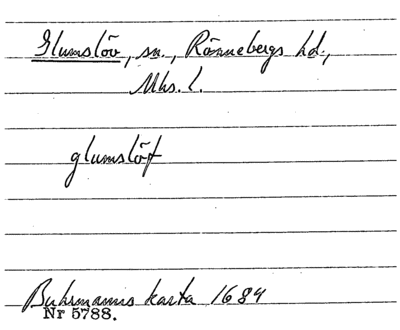 Glumslöv, sn., Rönnebergs hd.,
Mhs. l.
glumslöf
Buhrmanns karta 1684
Nr 5788.